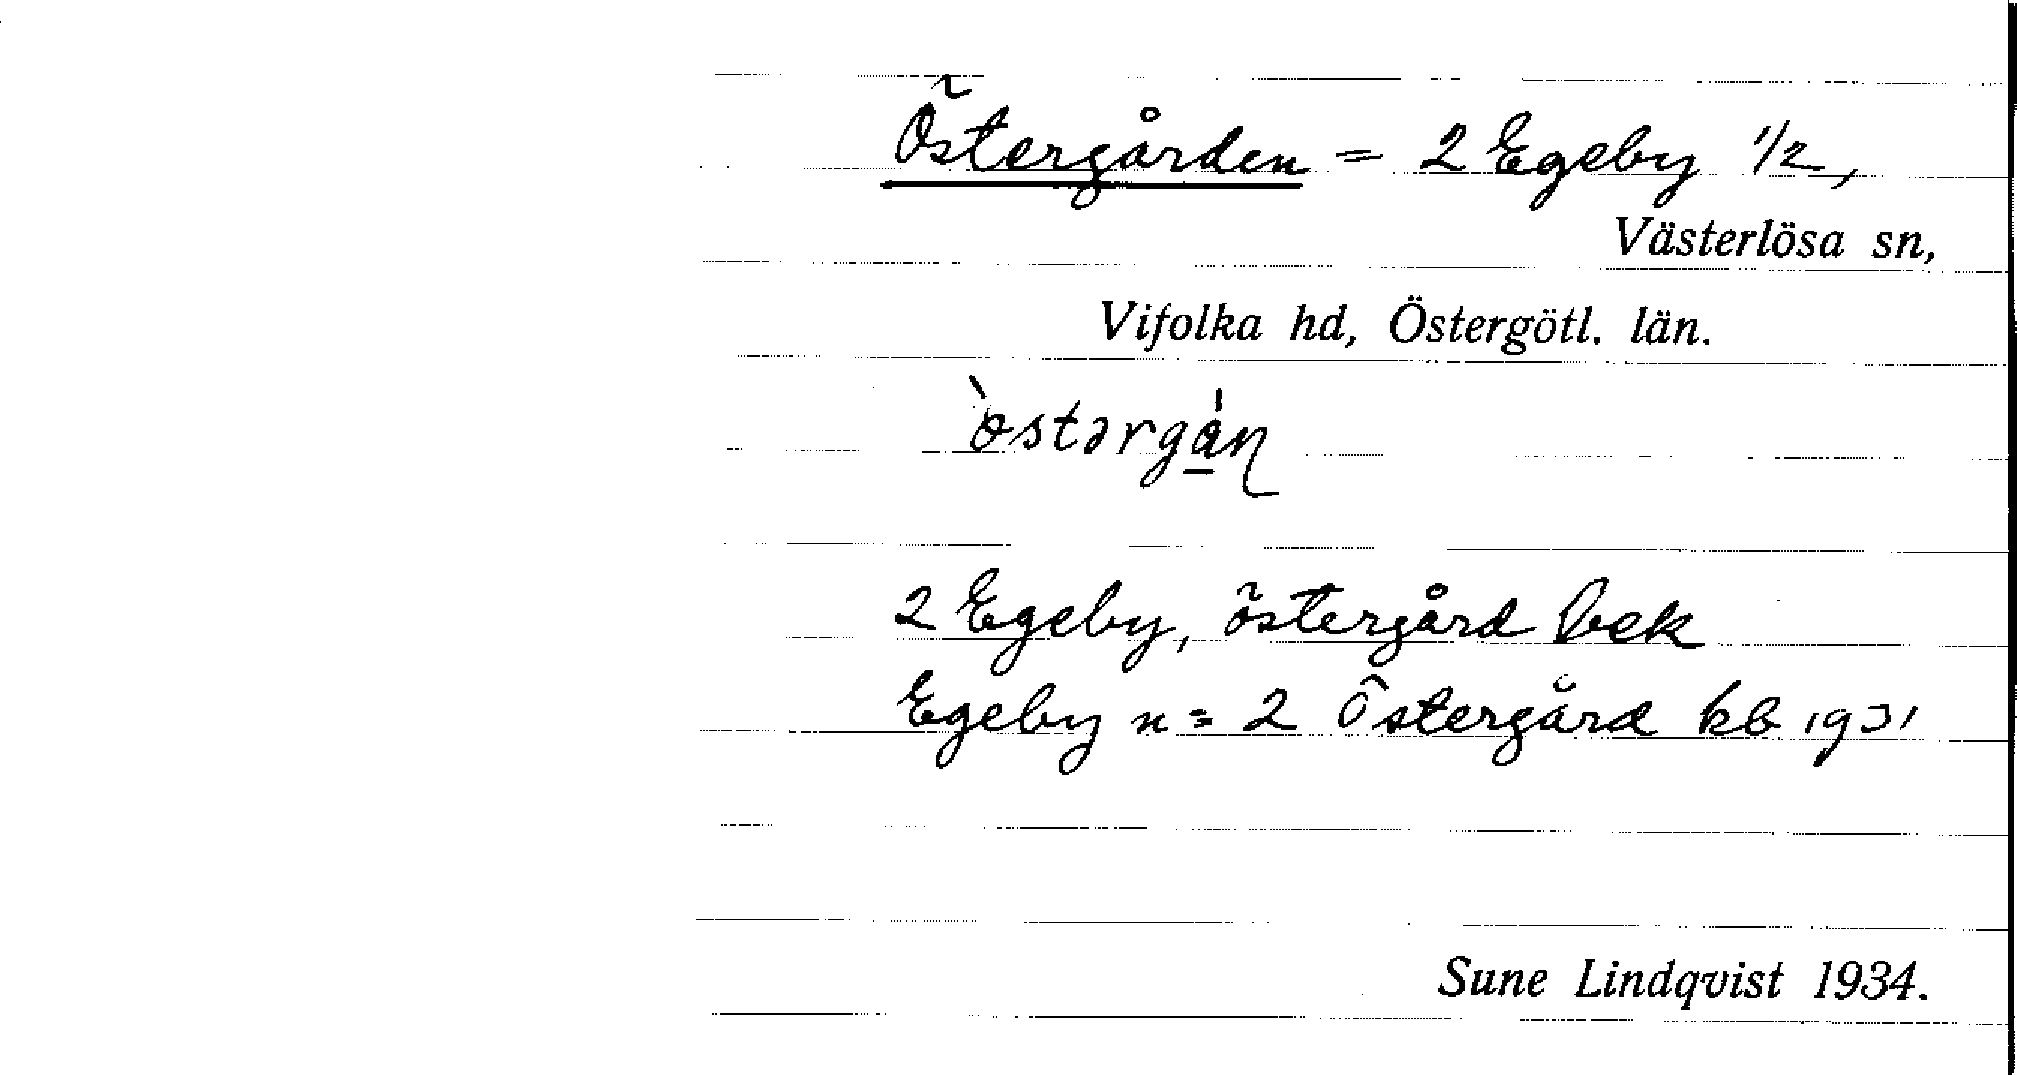 Östergården = 2 Egeby 1/2,
Västerlösa sn,
Vifolka hd, Östergötl. län.
2 Egeby, östergård bek
Egeby n = 2 Östergård kb 1931
Sune Lindqvist 1934.